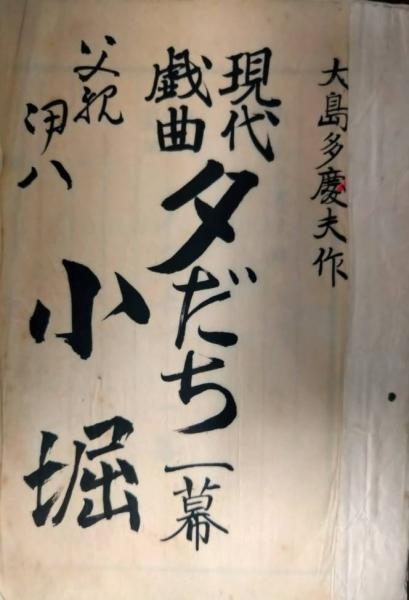 大島多慶夫作
現代
戯曲
夕だち 一幕
父親
伊八
小堀